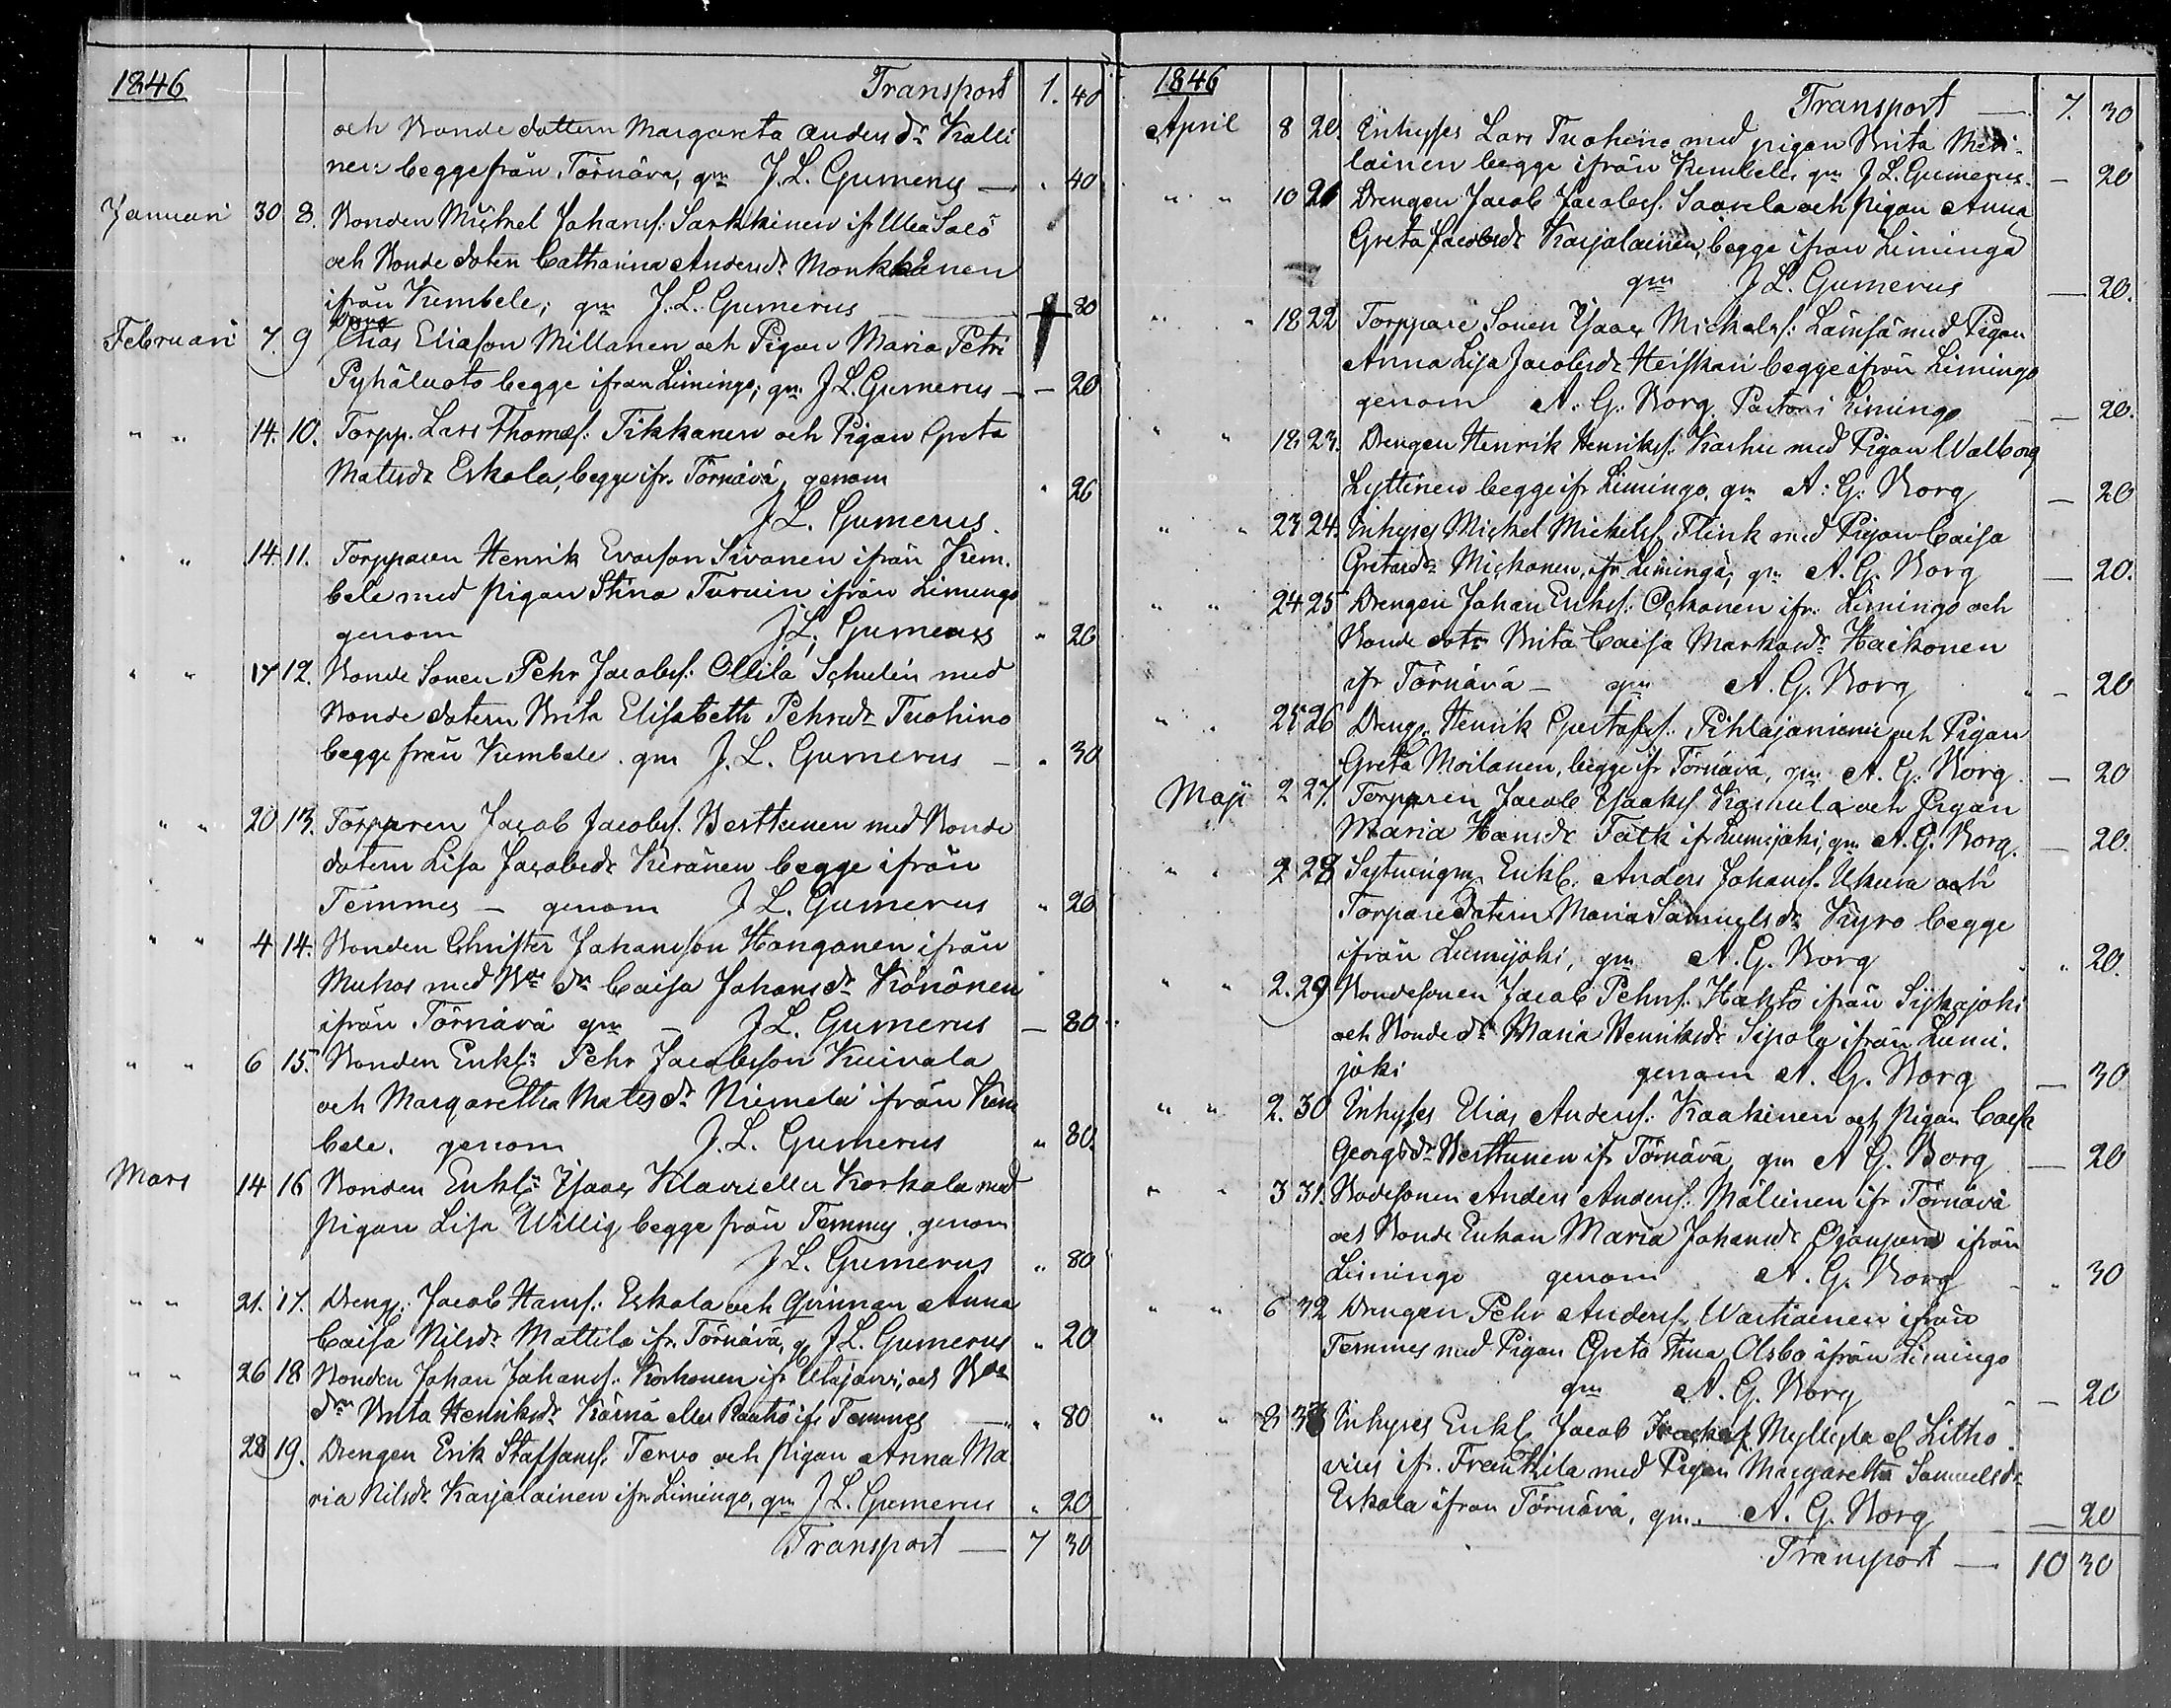 1846
Transport 1. 40
och Bonde dottern Margareta Anders dr Kalli
nen begge från Törnäva, gm J. L. Gumerus — " 40
Januari 30 8. Bonden Michel Johansf. Sarkkinen ifr Uleå Salo
och Bonde doten Catharina Andersdr Monkkonen
ifrån Kembele; gm J. L. Gumerus — 80
Februari 7. 9 Elias Eliasson Millanen och Pigan Maria Petri
Pyhäluoto begge ifran Limingo; gm J. L. Gumerus — — 20
" " 14. 10. Torpp. Lars Thomasf. Tikkanen och Pigan Greta
Matsdr Eskola, begge ifr. Törnävä, genom " 20
J. L. Gumerus.
" " 14. 11. Torpparen Henrik Evasson Sivonen ifrån Kem.
bele med pigan Stina Turuin ifrån Limingo
genom J. L. Gumerus " 20
" " 17 12. Bonde Sonen Pehr Jacobsf. Ollila Schulin med
Bonde dotern Brita Elisabeth Pehrsdr Tuohino
begge från Kembele. gm J. L. Gumerus — " 30
" " 20 13. Torparen Jacob Jacobsf. Berttunen med Bonde
dotern Lisa Jacobsdr Keränen begge ifrån
Temmes — genom J. L. Gumerus " 20
" " 4 14. Bonden Christer Johansson Honganen ifrån
Muhos med Bde dr Caisa Johansdr Könönen
ifrån Törnävä gm — J. L. Gumerus — 80
" " 6 15. Bonden Enkl: Pehr Jacobsson Kuivala
och Margaretha Matsdr Niemelä ifrån Kem
bele. genom J. L. Gumerus " 80.
Mars 14 16 Bonden Enkl: Isaac Klavu eller Korkala med
pigan Lisa Willig begge från Temmes. genom
J. L. Gumerus " 80
" " 21. 17. Dreng: Jacob Hansf: Eskola och Qvinnan Anna
Caisa Nilsdr Mattila ifr. Törnävä, g J. L. Gumerus " 20
" " 26 18 Bonden Johan Johansf: Korhonen ifr Utajärvi, och Bde
drn Brita Henriksdr Kärnä eller Raatio ifr Temmes — " 80
28 19. Drengen Erik Staffansf. Tervo och pigan Anna Ma
ria Nilsdr Karjalainen ifrn Limingo, gm J. L. Gumerus " 20
Transport — 7 30
1846
Transport — 7. 30
April 8 20. Inhyses Lars Tuohino med pigan Brita Meri-
lainen begge ifrån Kembele, gm J. L. Gumerus. — 20
" " 10 21 Drengen Jacob Jacobsf. Saarela och pigan Anna
Greta Jacobsdr Karjalainen, begge ifran Liminga
gm J. L. Gumerus — 20.
" " 18 22 Torppare Sonen Isaac Michelsf: Lämsä med Pigan
Anna Lisa Jacobsdr Heiskari begge ifrån Limingo
genom A. G. Borg. Pastor i Limingo — 20.
" " 18. 23. Drengen Henrik Henriksf. Karhu med Pigan Walborg
Lyttinen begge ifr Limingo. gm A: G: Borg — 20
" " 23 24. Inhyses Michel Michelsf. Flink med Pigan Caisa
Michonen, ifr Limingå, gm A. G. Borg — 20.
" " 24 25 Drengen Johan Eriksf: Ockonen ifr. Limingo och
Bonde dotr Brita Caisa Marksdr Haikonen
ifr Törnävä — gm A. G. Borg " — 20
" " 25 26 Dreng. Henrik Gustafsf. Pihlajaniemi och Pigan
Greta Moilanen, begge ifr Törnävä, gm A. G. Borg. — 20
Maji 2 27. Torpparen Jacob Isaksf Kamula och Pigan
Maria Hansdr Falk ifr Lumijoki, gm A. G. Borg. — 20.
" " 2 28 Sytningm Enkl. Anders Johansf. Ukura och
Torparedotern Maria Samuelsdr Kyrö begge
ifrån Lumijoki, gm A. G. Borg " 20.
" " 2. 29 Bondesonen Jacob Pehrsf. Hakto ifrån Sijkajoki
och Bonde dr Maria Henriksdr Sipola ifrån Lumi.
joki genom A. G. Borg — 30
" " 2. 30 Inhyses Elias Andersf: Kaakinen och pigan Caisa
Georgsdr Berttunen ifr Törnävä, gm A G. Borg — 20
" " 3 31. Bodesonen Anders Andersf. Mälkinen ifr Törnävä
och Bonde Enkan Maria Johansdr Ojanperä ifrån
Limingo genom A. G. Borg — " 30
" " 6 32 Drengen Pehr Andersf. Wartiainen ifrån
Temmes med Pigan Greta Stina Olsbo ifrån Limingo
gm A. G. Borg — 20
" " 8 33 Inhyses Enkl Jacob Myllylä el Litho
vius ifr. Frantzila med Pigan Margaretha Samuelsdr
Eskola ifran Törnävä, gm. A. G. Borg — 20
Transport — 10 30